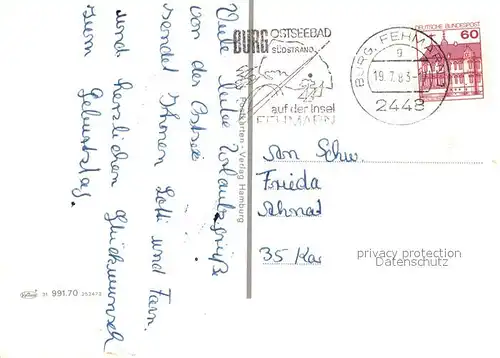 Viele liebe Urlaubsgrüße
von der Ostsee
sendet Ihnen Lotti und Fam.
und herzlichen Glückwunsch
zum Geburtstag.
BURG OSTSEEBAD
SÜDSTRAND
auf der Insel
FEHMARN
BURG, FEHMARN
g
19.7.83-
2448
DEUTSCHE BUNDESPOST
60
Postkarten-Verlag Hamburg
An Schw.
Frieda
35 Kas
privacy protection
Datenschutz
31 991.70 353472